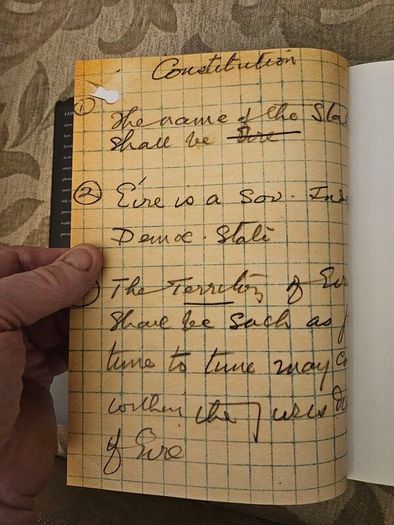 Constitution
① The name of the Sta
shall be Eire
② Éire is a Sov. Inde
Democ. State
The Territory of Eir
shall be such as f
time to time may co
within the juris di
of Eire